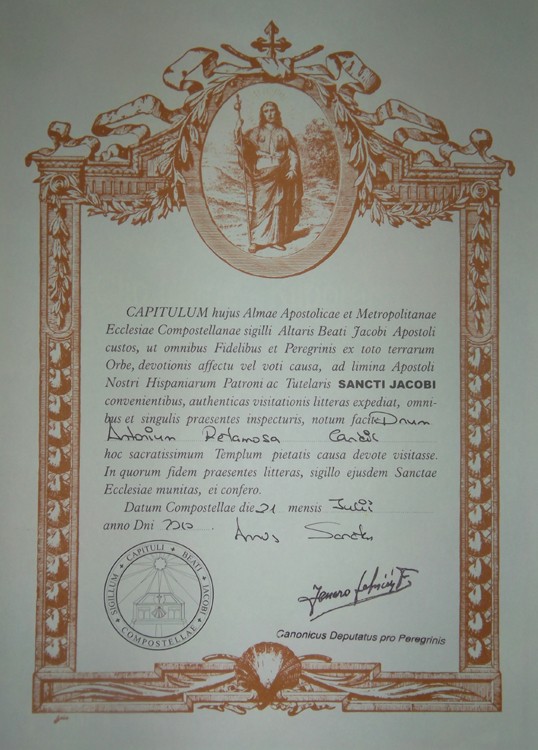 CAPITULUM hujus Almae Apostolicae et Metropolitanae
Ecclesiae Compostellanae sigilli Altaris Beati Jacobi Apostoli
custos, ut omnibus Fidelibus et Peregrinis ex toto terrarum
Orbe, devotionis affectu vel voti causa, ad limina Apostoli
Nostri Hispaniarum Patroni ac Tutelaris SANCTI JACOBI
convenientibus, authenticas visitationis litteras expediat, omni-
bus et singulis praesentes inspecturis, notum facit: Dnum
Antonium Retamosa
hoc sacratissimum Templum pietatis causa devote visitasse.
In quorum fidem praesentes litteras, sigillo ejusdem Sanctae
Ecclesiae munitas, ei confero.
Datum Compostellae die 21 mensis Julii
anno Dni 2010 .
Annus Sanctus
SIGILLUM ✦ CAPITULI ✦ BEATI ✦ JACOBI ✦ COMPOSTELLAE ✦
Canonicus Deputatus pro Peregrinis